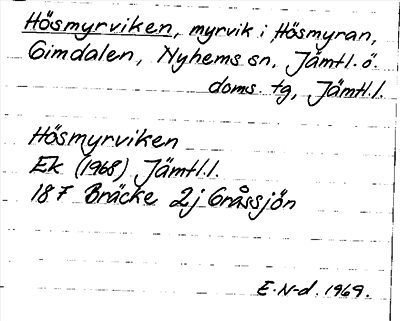 Hösmyrviken, myrvik i Hösmyran,
Gimdalen, Nyhems sn, Jämtl. ö.
doms. tg, Jämtl. l.
Hösmyrviken
Ek (1968) Jämtl. l.
18 F Bräcke 2j Gråssjön
E. N-d. 1969.